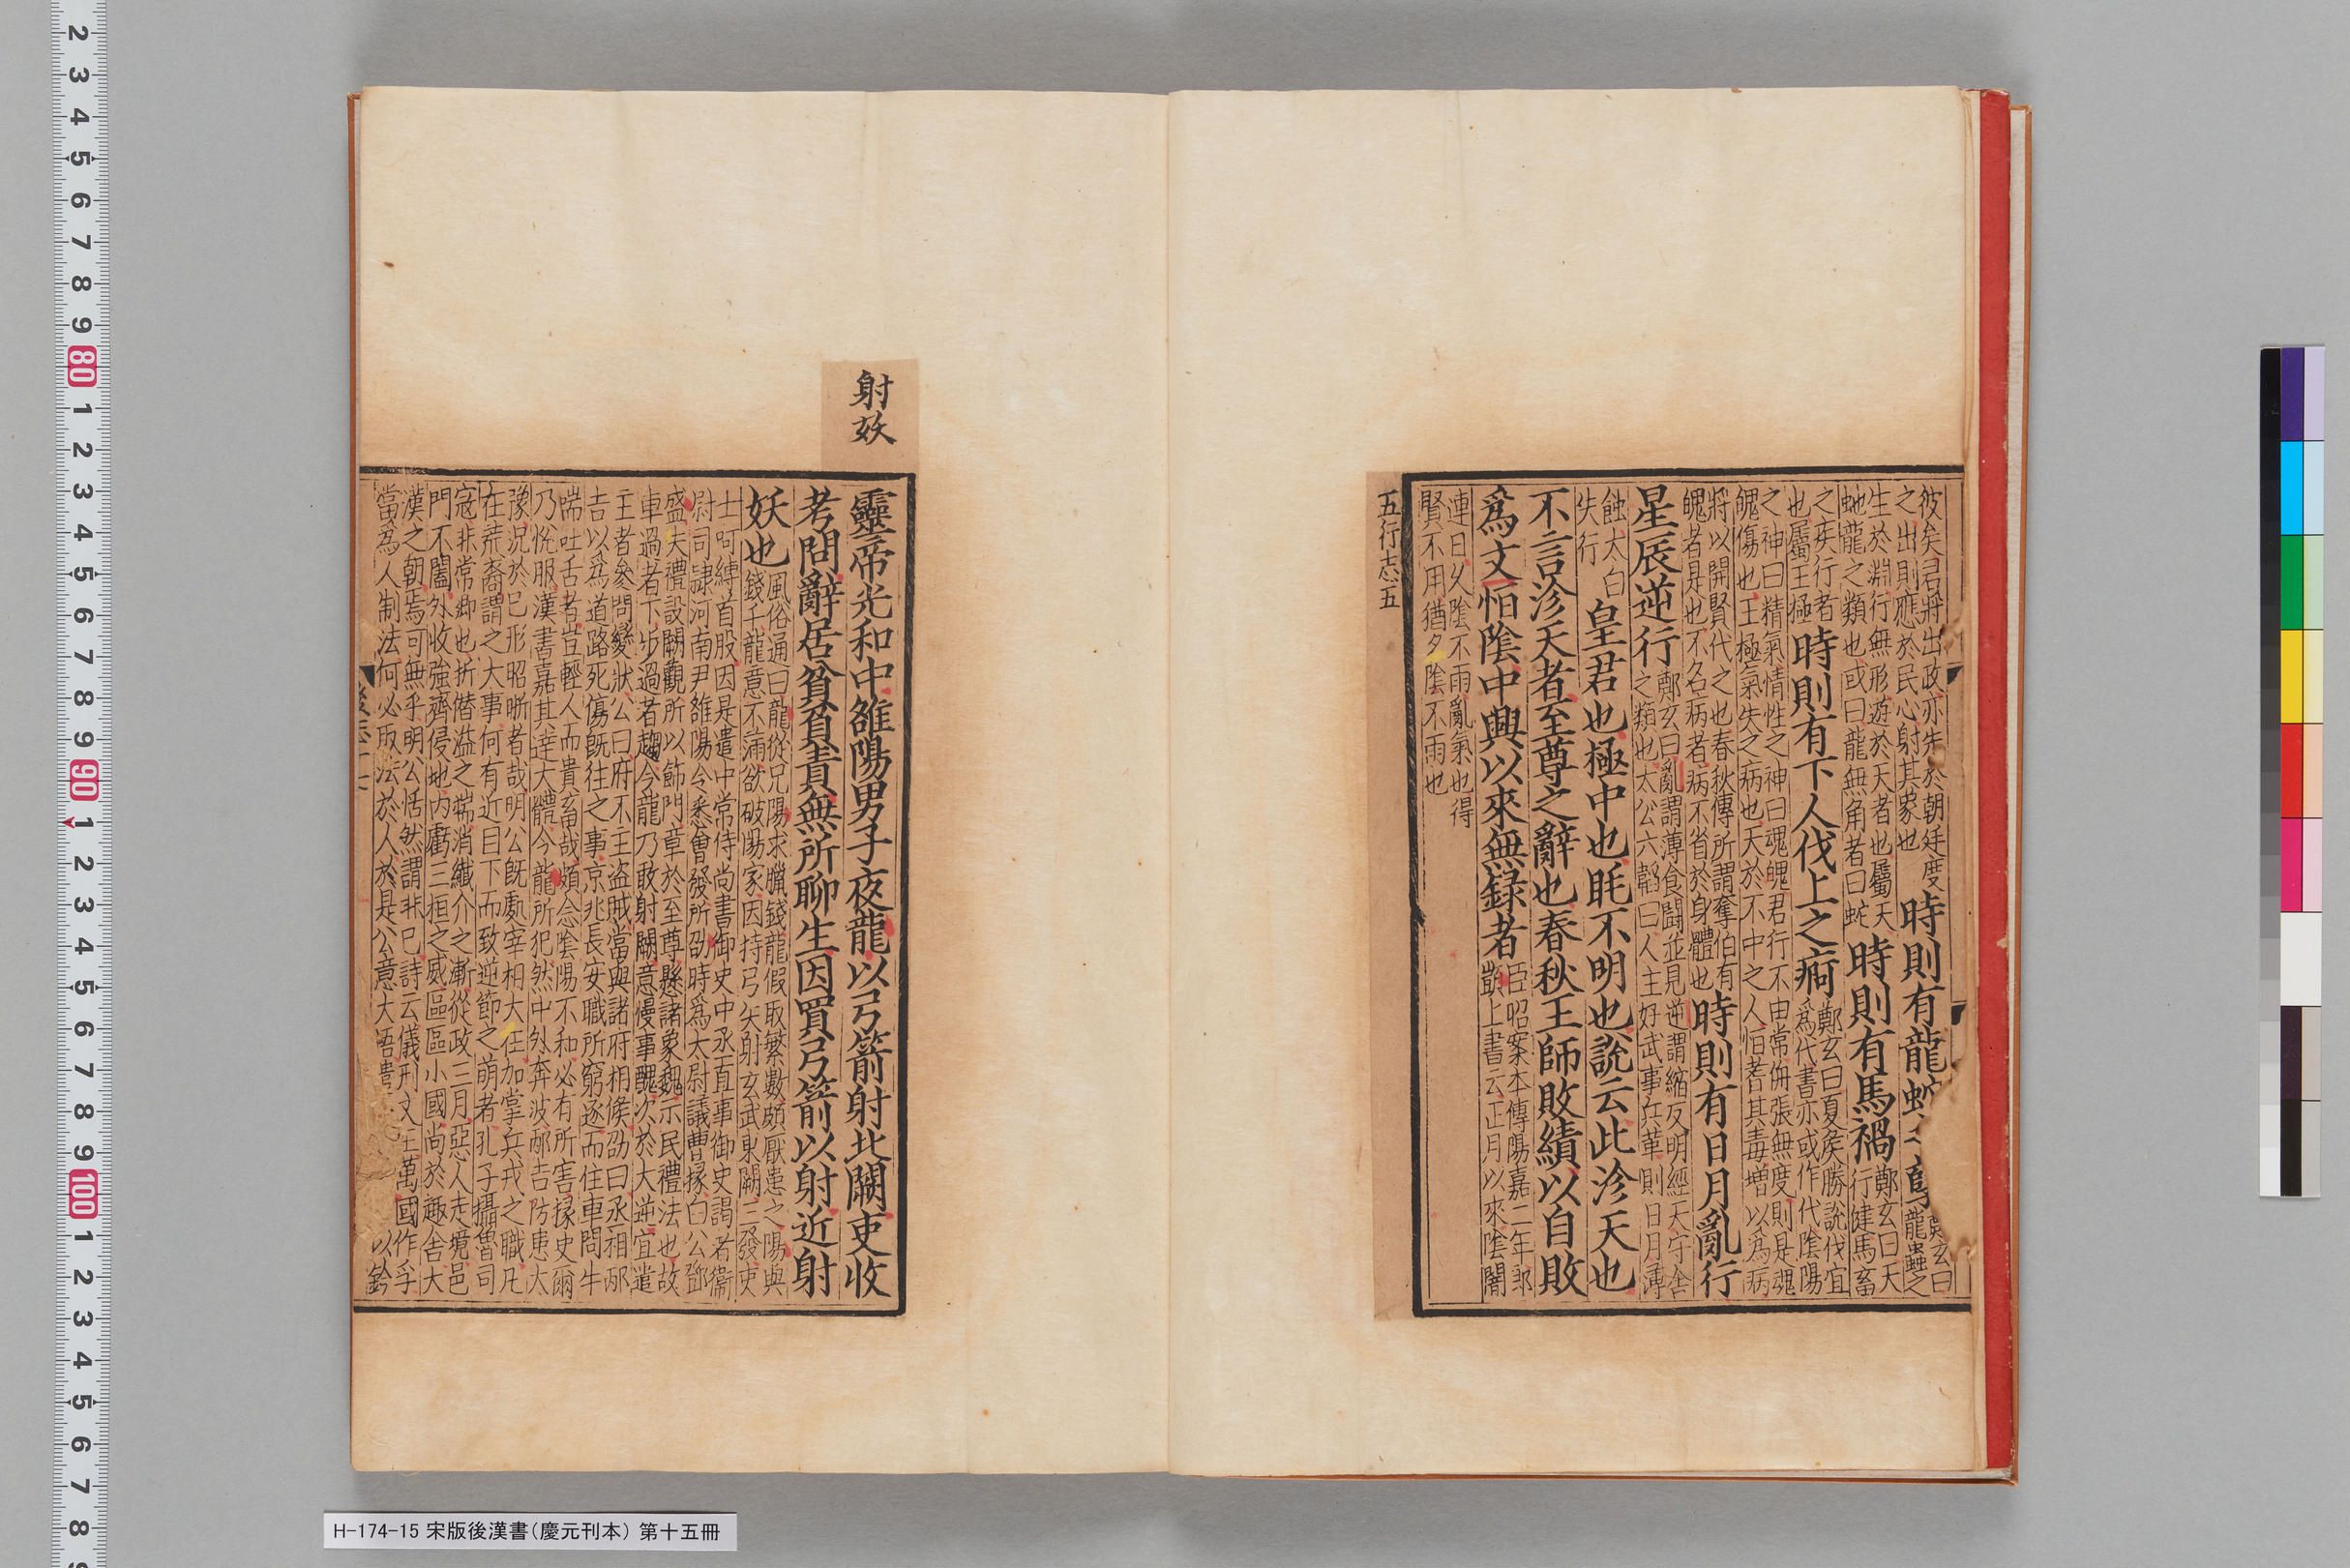 彼矣君將出政亦先於朝廷度
之出則應於民心射其象也
時則有龍蛇
玄曰
龍蟲之
生於淵行無形遊於天者也屬天
虵龍之類也或曰龍無角者曰蛇
時則有馬禍
鄭玄曰天
行健馬畜
之疾行者
也屬王極
時則有下人伐上之痾
鄭玄曰夏侯勝說伐宜
爲代書亦或作代陰陽
之神曰精氣情性之神曰魂魄君行不由常侜張無度則是魂
魄傷也王極氣失之病也天於不中之人怕耆其毒增以爲病
將以開賢代之也春秋傳所謂奪伯有
魄者是也不名病者病不省於身體也
時則有日月亂行
星辰逆行
鄭玄曰亂謂薄食鬪並見逆謂縮反明經天守舍
之類也太公六韜曰人主好武事兵革則日月薄
蝕太白
失行
皇君也極中也眊不明也說云此沴天也
不言沴天者至尊之辭也春秋王師敗績以自敗
爲文怕陰中興以來無録者
臣昭案本傳陽嘉二年郎
顗上書云正月以來陰闇
連日久陰不雨亂氣也得
賢不用猶夕陰不雨也
五行志五
射妖
靈帝光和中雒陽男子夜龍以弓箭射北闕吏收
考問辭居貧負責無所聊生因買弓箭以射近射
妖也
風俗通曰龍從兄陽求臘錢龍假取繁數頗厭患之陽與
錢千龍意不滿欲破陽家因持弓矢射玄武東闕三發吏
士呵縛首服因是遣中常侍尚書御史中丞直事御史謁者衞
尉司隷河南尹雒陽令悉會發所劭時爲太尉議曹掾白公鄧
盛夫禮設闕觀所以飾門章於至尊懸諸象魏示民禮法也故
車過者下步過者趨今龍乃敢射闕意慢事醜次於大逆宜遣
主者參問變狀公曰府不主盜賊當與諸府相候劭曰丞相邴
吉以爲道路死傷旣往之事京兆長安職所窮逐而住車問牛
喘吐舌者豈輕人而貴畜哉頗念陰陽不和必有所害掾史爾
乃悅服漢書嘉其達大體今龍所犯然中外奔波邴吉防患大
豫況於已形昭晣者哉明公旣處宰相大任加掌兵戎之職凡
在荒裔謂之大事何有近目下而致逆節之萌者孔子攝魯司
寇非常卿也折僭溢之端消纖介之漸從政三月惡人走境邑
門不闔外收強齊侵地內虧三桓之威區區小國尚於趣舍大
漢之朝焉可無乎明公恬然謂非已詩云儀刑文王萬國作孚
當爲人制法何必取法於人於是公意大悟遣以鈐
H-174-15 宋版後漢書(慶元刊本) 第十五冊